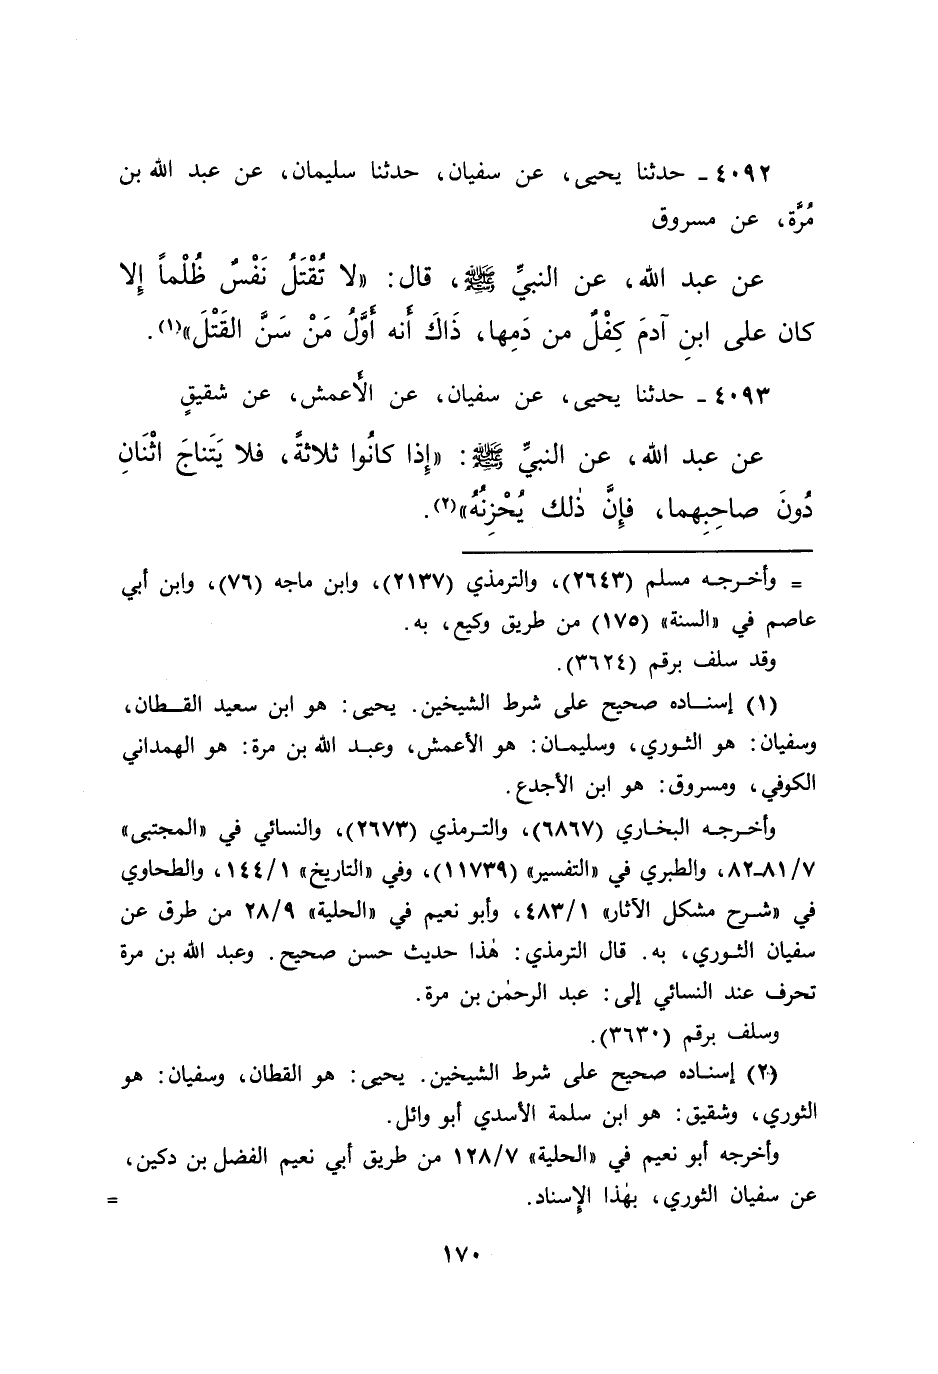 ٤٠٩٢ - حدثنا يحيى، عن سفيان، حدثنا سليمان، عن عبد الله بن
مُرَّة، عن مسروق
عن عبد الله، عن النبيِّ ﷺ، قال: «لا تُقْتَلُ نَفْسٌ ظُلْماً إلا
كان على ابنِ آدمَ كِفْلٌ من دَمِها، ذَاكَ أَنه أَوَّلُ مَنْ سَنَّ القَتْلَ»(١).
٤٠٩٣ - حدثنا يحيى، عن سفيان، عن الأَعمش، عن شقيقٍ
عن عبد الله، عن النبيِّ ﷺ: «إِذا كانُوا ثلاثةً، فلا يَتَناجَ اثْنَانِ
دُونَ صاحِبِهما، فإِنَّ ذٰلك يُحْزِنُهُ»(٢).
= وأخرجه مسلم (٢٦٤٣)، والترمذي (٢١٣٧)، وابن ماجه (٧٦)، وابن أبي
عاصم في «السنة» (١٧٥) من طريق وكيع، به.
وقد سلف برقم (٣٦٢٤).
(١) إسناده صحيح على شرط الشيخين. يحيى: هو ابن سعيد القطان،
وسفيان: هو الثوري، وسليمان: هو الأعمش، وعبد الله بن مرة: هو الهمداني
الكوفي، ومسروق: هو ابن الأجدع.
وأخرجه البخاري (٦٨٦٧)، والترمذي (٢٦٧٣)، والنسائي في «المجتبى»
٧/ ٨١-٨٢، والطبري في «التفسير» (١١٧٣٩)، وفي «التاريخ» ١/ ١٤٤، والطحاوي
في «شرح مشكل الآثار» ١/ ٤٨٣، وأبو نعيم في «الحلية» ٩/ ٢٨ من طرق عن
سفيان الثوري، به. قال الترمذي: هٰذا حديث حسن صحيح. وعبد الله بن مرة
تحرف عند النسائي إلى: عبد الرحمٰن بن مرة.
وسلف برقم (٣٦٣٠).
(٢) إسناده صحيح على شرط الشيخين. يحيى: هو القطان، وسفيان: هو
الثوري، وشقيق: هو ابن سلمة الأسدي أبو وائل.
وأخرجه أبو نعيم في «الحلية» ٧/ ١٢٨ من طريق أبي نعيم الفضل بن دكين،
عن سفيان الثوري، بهٰذا الإِسناد. =
١٧٠